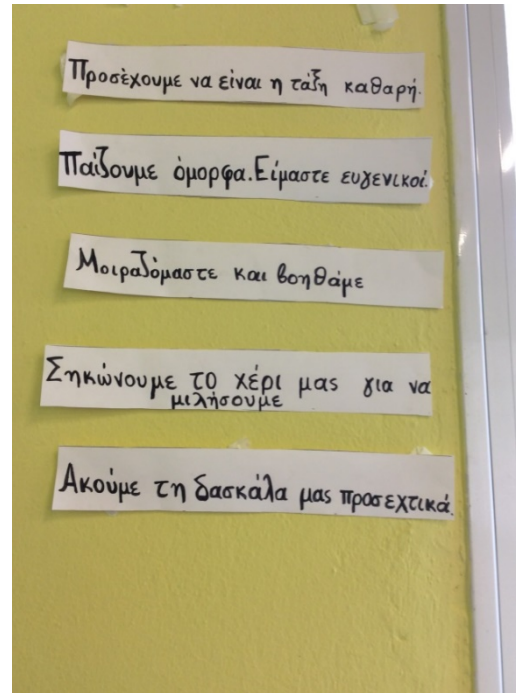 Προσέχουμε να είναι η τάξη καθαρή.
Παίζουμε όμορφα. Είμαστε ευγενικοί.
Μοιραζόμαστε και βοηθάμε
Σηκώνουμε το χέρι μας για να
μιλήσουμε
Ακούμε τη δασκάλα μας προσεχτικά.